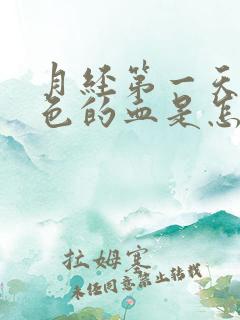 月经第一天
色的血是怎
拉姆寒
未经同意禁止转载